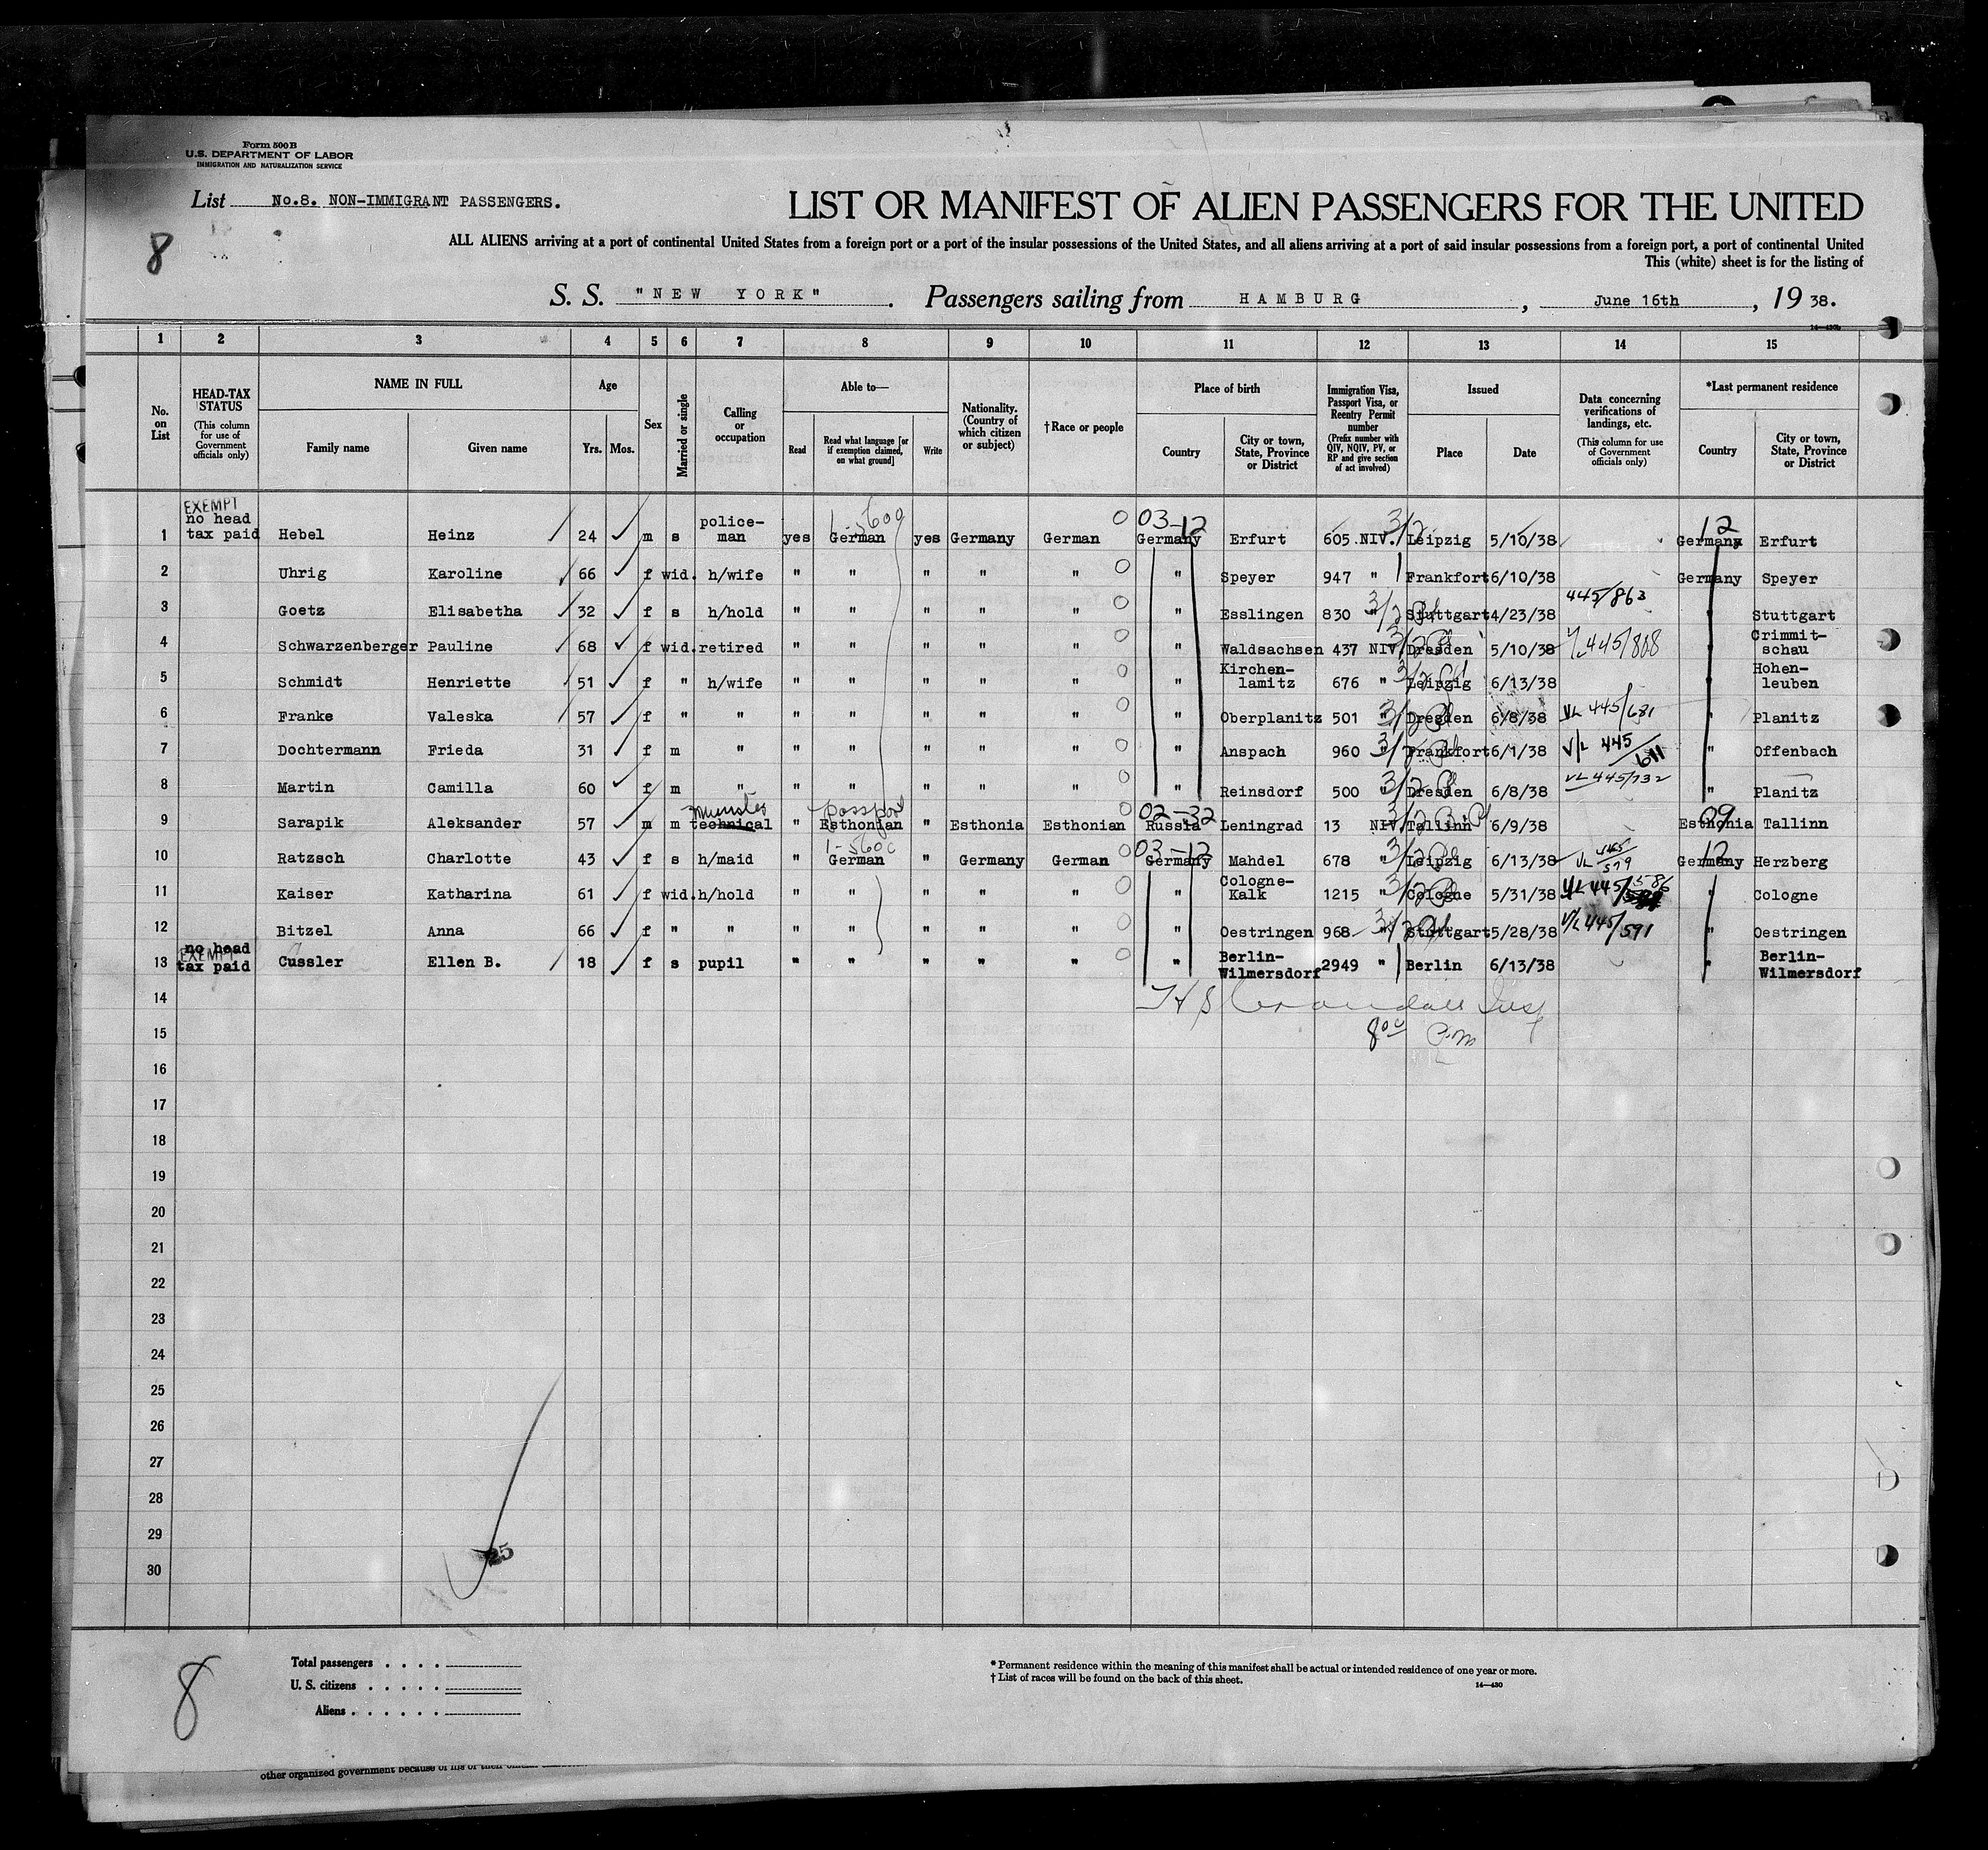 Form 500 B
U.S. DEPARTMENT OF LABOR
IMMIGRATION AND NATURALIZATION SERVICE
List No.8. NON-IMMIGRANT PASSENGERS.
LIST OR MANIFEST OF ALIEN PASSENGERS FOR THE UNITED
8
ALL ALIENS arriving at a port of continental United States from a foreign port or a port of the insular possessions of the United States, and all aliens arriving at a port of said insular possessions from a foreign port, a port of continental United
This (white) sheet is for the listing of
S. S. "NEW YORK". Passengers sailing from HAMBURG, June 16th, 19 38.
14—430b
1 2 3 4 5 6 7 8 9 10 11 12 13 14 15
No. on List
HEAD-TAX STATUS (This column for use of Government officials only)
NAME IN FULL
Family name Given name
Age
Yrs. Mos.
Sex
Married or single
Calling or occupation
Able to—
Read
Read what language [or if exemption claimed, on what ground]
Write
Nationality. (Country of which citizen or subject)
† Race or people
Place of birth
Country
City or town, State, Province or District
Immigration Visa, Passport Visa, or Reentry Permit number (Prefix number with QIV, NQIV, PV, or RP and give section of act involved)
Issued
Place Date
Data concerning verifications of landings, etc. (This column for use of Government officials only)
*Last permanent residence
Country
City or town, State, Province or District
EXEMPT
no head
1 tax paid Hebel Heinz 24 m s police-man yes German yes Germany German Germany Erfurt 605 NIV. Leipzig 5/10/38 Germany Erfurt
03-12 3/2 12
2 Uhrig Karoline 66 f wid. h/wife " " " " " " Speyer 947 " Frankfort 6/10/38 Germany Speyer
3 Goetz Elisabetha 32 f s h/hold " " " " " " Esslingen 830 " Stuttgart 4/23/38 445/863 " Stuttgart
4 Schwarzenberger Pauline 68 f wid. retired " " " " " " Waldsachsen 437 NIV. Dresden 5/10/38 445/808 " Crimmit-schau
5 Schmidt Henriette 51 f " h/wife " " " " " " Kirchen-lamitz 676 " Leipzig 6/13/38 " Hohen-leuben
6 Franke Valeska 57 f " " " " " " " " Oberplanitz 501 " Dresden 6/8/38 VL 445/681 " Planitz
7 Dochtermann Frieda 31 f m " " " " " " " Anspach 960 " Frankfort 6/1/38 V/L 445/611 " Offenbach
8 Martin Camilla 60 f m " " " " " " " Reinsdorf 500 " Dresden 6/8/38 VL 445/732 " Planitz
minister passport 02-32 09
9 Sarapik Aleksander 57 m m technical " Esthonian " Esthonia Esthonian Russia Leningrad 13 NIV. Tallinn 6/9/38 Esthonia Tallinn
03-12 12
10 Ratzsch Charlotte 43 f s h/maid " German " Germany German Germany Mahdel 678 " Leipzig 6/13/38 VL 445/579 Germany Herzberg
11 Kaiser Katharina 61 f wid. h/hold " " " " " " Cologne-Kalk 1215 " Cologne 5/31/38 VL 445/586 " Cologne
12 Bitzel Anna 66 f " " " " " " " " Oestringen 968 " Stuttgart 5/28/38 V/L 445/591 " Oestringen
no head
EXEMPT
13 tax paid Cussler Ellen B. 18 f s pupil " " " " " " Berlin-Wilmersdorf 2949 " Berlin 6/13/38 " Berlin-Wilmersdorf
14
15 8 00 P.M
16
17
18
19
20
21
22
23
24
25
26
27
28
29
30
25
8
Total passengers . . . .
U. S. citizens . . . . .
Aliens . . . . . .
* Permanent residence within the meaning of this manifest shall be actual or intended residence of one year or more.
† List of races will be found on the back of this sheet.
14—430